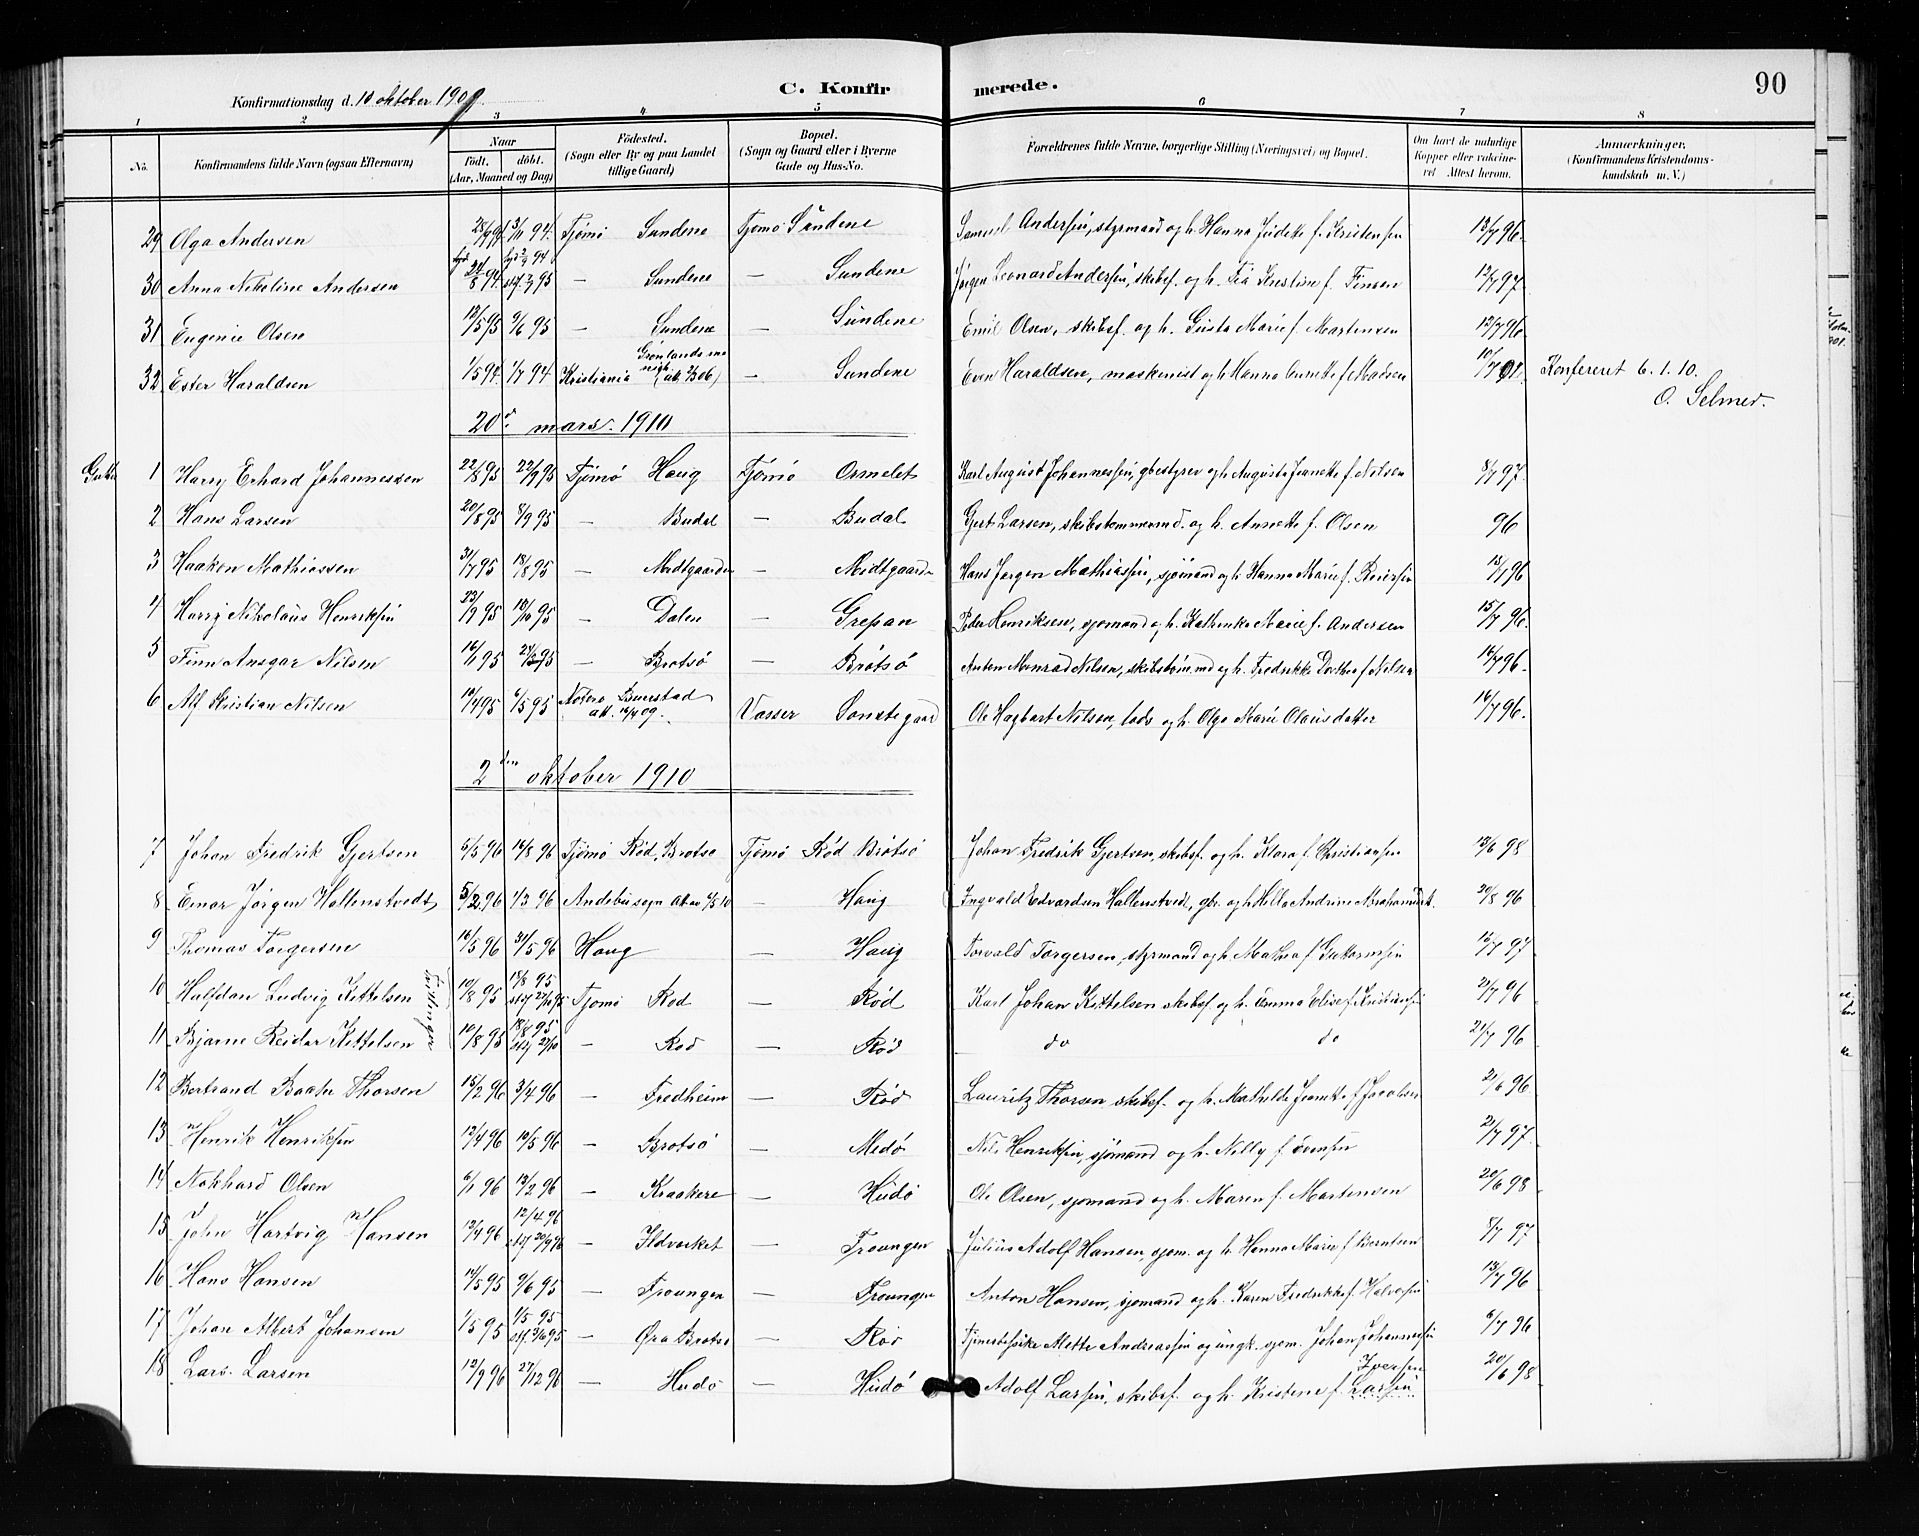 90
Konfirmationsdag d. 10 oktober 1909. C. Konfirmerede.
1 2 3 4 5 6 7 8
No. Konfirmandens fulde Navn (ogsaa Efternavn) Naar Født. døbt. (Aar, Maaned og Dag) Fødested. (Sogn eller By og paa Landet tillige Gaard) Bopæl. (Sogn og Gaard eller i Byerne Gade og Hus-No. Forældrenes fulde Navne, borgerlige Stilling (Næringsvei) og Bopæl. Om havt de naturlige Kopper eller vaccineret Attest herom. Anmærkninger. (Konfirmandens Kristendomskundskab m. V.)
29 Olga Andersen 94. Tjømø Sundene Tjømø Sundene Samuel Andersen, styrmand og h. Hanna Judette f. Kristensen 13/7 96.
30 Anna Nikoline Andersen — Sundene — Sundene Jørgen Leonard Andersen, skibsf. og h. Fia Kristine f. Finsen 12/7 97
31 Eugenie Olsen 12/5 95 9/6 95 — Sundene — Sundene Emil Olsen, skibsf. og h. Gusta Marie f. Martensen 12/7 96
32 Ester Haraldsen 1/5 94. 1/7 94 Kristiania Grønlands menigh. — Sundene Even Haraldsen, maskinist og h. Hanna Annette f. Madsen Konfereret 6.1.10. O. Selmer.
20de mars. 1910
Gutter 1 Harry Erhard Johannessen 22/8 95 22/9 95 Tjømø Haug Tjømø Ormelet Karl August Johannessen, gbestyrer og h. Augusta Jeanette f. Nilsen 8/7 97.
2 Hans Larsen 20/8 95 8/9 95 — Budal — Budal Gert Larsen, skibstømmermd. og h. Annette f. Olsen 96
3 Haakon Mathiassen 31/7 95 18/8 95 — Midtgaarden — Midtgaarden Hans Jørgen Mathiassen, sjømand og h. Hanna Marie f. 15/7 96
4 Harry Nikolaus Henriksen 23/9 95 — Dalen — Grepan Peder Henriksen, sjømand og h. Kathinka Marie f. Andersen 15/7 96.
5 Finn Ansgar Nilsen 16/1 95 — Brøtsø — Brøtsø Anton Monrad Nilsen, skibstøm.md og h. Fredrikke Dorthea f. Nilsen 16/7 96.
6 Alf Kristian Nilsen 10/4 95 6/5 95 Nøterø att. 16/4 09. Vasser Søndregaard Ole Hagbart Nilsen, lods og h. Olga Marie Olausdatter 16/7 96.
2den oktober 1910
7 Johan Fredrik Gjertsen 5/5 96 16/8 96 Tjømø Rød, Brøtsø Tjømø Rød Brøtsø Johan Fredrik Gjertsen, skibsf. og h. Klara f. Christiansen 13/6 98
8 Einar Jørgen Haltenstvedt 5/2 96 1/3 96 Andebu sogn — Haug Ingvald Edvardsen Haltenstvedt, gbr. og h. Helle Andrine Abrahamsdt. 20/8 96
9 Thomas Torgersen 16/5 96 31/5 96 Haug — Haug Torvald Torgersen, styrmand og h. Mathea f. Guttormsen 15/7 97
10 Halfdan Ludvig Kittelsen Tvillinger 10/8 95 18/8 95 stf 27/10 95 Tjømø Rød — Rød Karl Johan Kittelsen skibsf. og h. Emma Elise f. Kristiansen 21/7 96
11 Bjarne Reidar Kittelsen 10/8 95 18/8 95 stf 27/10 — Rød — Rød do do 21/7 96
12 Bertrand Baake Thorsen 15/2 96 3/4 96 — Fredheim — Rød Lauritz Thorsen skibsf. og h. Mathilde Jeanette f. Jacobsen 21/6 96
13 Henrik Henriksen 12/4 96 10/5 96 — Brøtsø — Medø Nils Henriksen, sjømand og h. Nilly f. 21/7 97.
14 Olsen 6/1 96 13/2 96 — Kraakere — Hudø Ole Olsen, sjømand og h. Maren f. Martensen 20/6 98
15 John Hartvig Hansen 12/4 96 12/4 96 stf 20/9 96 — Ildverket — Traungen Julius Adolf Hansen, sjøm. og h. Hanna Marie f. Berntsen 8/7 97
16 Hans Hansen 12/5 95 9/6 95 — Traungen — Traungen Anton Hansen, sjømand og h. Karen Fredrikke f. Halvorsen 13/7 96
17 Johan Albert Johansen 1/5 95 1/5 95 — Øra Brøtsø — Rød Tjenestepike Mette Andreassen og ungk. sjøm. Johan Johannessen 6/7 96
18 Lars Larsen 12/9 96 27/12 96 — Hudø — Hudø Adolf Larsen, skibsf. og h. Kristine f. Larsen Iversen 20/6 98